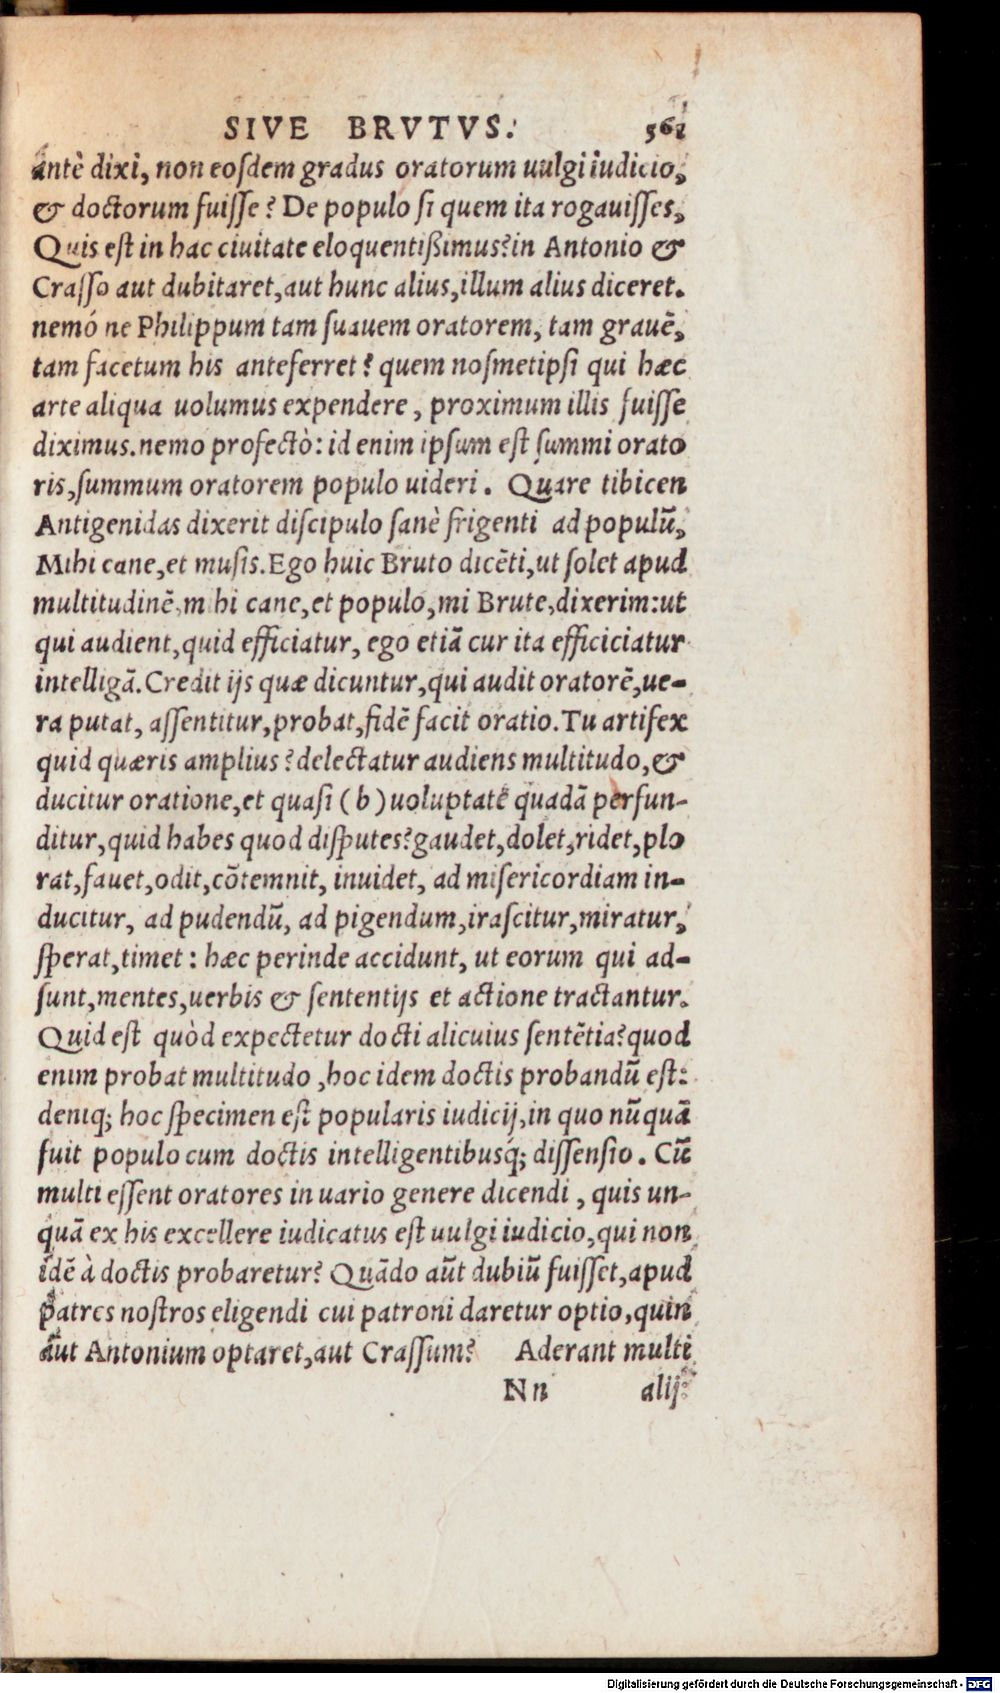 SIVE BRVTVS. 561
antè dixi, non eosdem gradus oratorum uulgi iudicio,
& doctorum fuisse? De populo si quem ita rogauisses,
Quis est in hac ciuitate eloquentißimus? in Antonio &
Crasso aut dubitaret, aut hunc alius, illum alius diceret.
nemó ne Philippum tam suauem oratorem, tam grauē,
tam facetum his anteferret? quem nosmetipsi qui hæc
arte aliqua uolumus expendere, proximum illis fuisse
diximus. nemo profectò: id enim ipsum est summi orato
ris, summum oratorem populo uideri. Quare tibicen
Antigenidas dixerit discipulo sanè frigenti ad populū,
Mihi cane, et musis. Ego huic Bruto dicēti, ut solet apud
multitudinē, mihi cane, et populo, mi Brute, dixerim: ut
qui audient, quid efficiatur, ego etiā cur ita efficiciatur
intelligā. Credit ijs quæ dicuntur, qui audit oratorē, ue-
ra putat, assentitur, probat, fidē facit oratio. Tu artifex
quid quæris amplius? delectatur audiens multitudo, &
ducitur oratione, et quasi (b) uoluptatē quadā perfun-
ditur, quid habes quod disputes? gaudet, dolet, ridet, plo
rat, fauet, odit, cōtemnit, inuidet, ad misericordiam in-
ducitur, ad pudendū, ad pigendum, irascitur, miratur,
sperat, timet: hæc perinde accidunt, ut eorum qui ad-
sunt, mentes, uerbis & sententijs et actione tractantur.
Quid est quòd expectetur docti alicuius sentētia? quod
enim probat multitudo, hoc idem doctis probandū est:
deniq; hoc specimen est popularis iudicij, in quo nūquā
fuit populo cum doctis intelligentibusq́; dissensio. Cū
multi essent oratores in uario genere dicendi, quis un-
quā ex his excellere iudicatus est uulgi iudicio, qui non
idē à doctis probaretur? Quādo aūt dubiū fuisset, apud
patres nostros eligendi cui patroni daretur optio, quin
aut Antonium optaret, aut Crassum? Aderant multi
Nn alij:
Digitalisierung gefördert durch die Deutsche Forschungsgemeinschaft - DFG